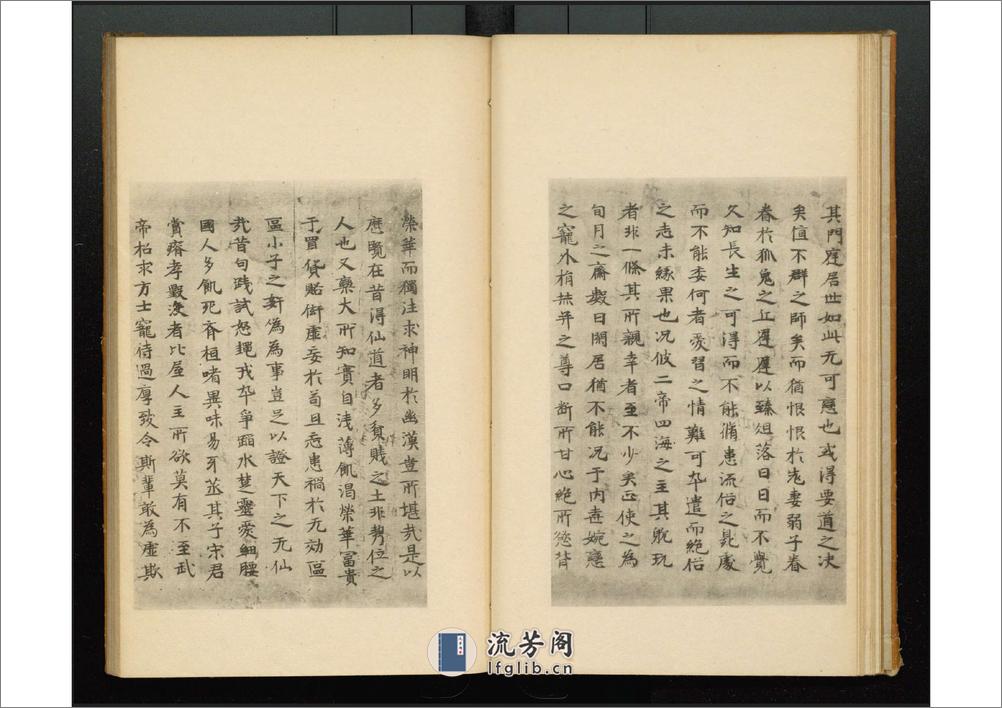 其門庭居世如此无可戀也或得要道之决
矣值不群之師矣而猶恨恨於老妻弱子眷
眷於狐菟之丘遲遲以臻俎落日日而不覺
久知長生之可得而不能脩患流俗之臭處
而不能委何者愛習之情難可卒遣而絶俗
之志未緣果也况伩二帝四海之主其躭玩
者非一條其所親幸者至不少矣正使之為
旬月之齋數日閑居猶不能况于内弃婉戀
之寵外捎赫弈之尊口断所甘心絶所慾背
榮華而獨往求神明於幽漠豈所堪哉是以
歷覽在昔得仙道者多貧賤之士非勢位之
人也又欒大所知實自浅薄飢渴榮華冝貴
于冐貨貽衒虚妄於苟且忘患禍於无効區
區小子之奸偽為事豈足以證天下之无仙
㢤昔句踐試怒䵷我卒爭蹈水楚靈愛細腰
國人多飢死齊桓嗜異味易牙蒸其子宋君
賞瘠孝毀没者比屋人主所欲莫有不至武
帝招求方士寵待過厚致令斯輩敢為虚欺
流芳阁
lfglib.cn